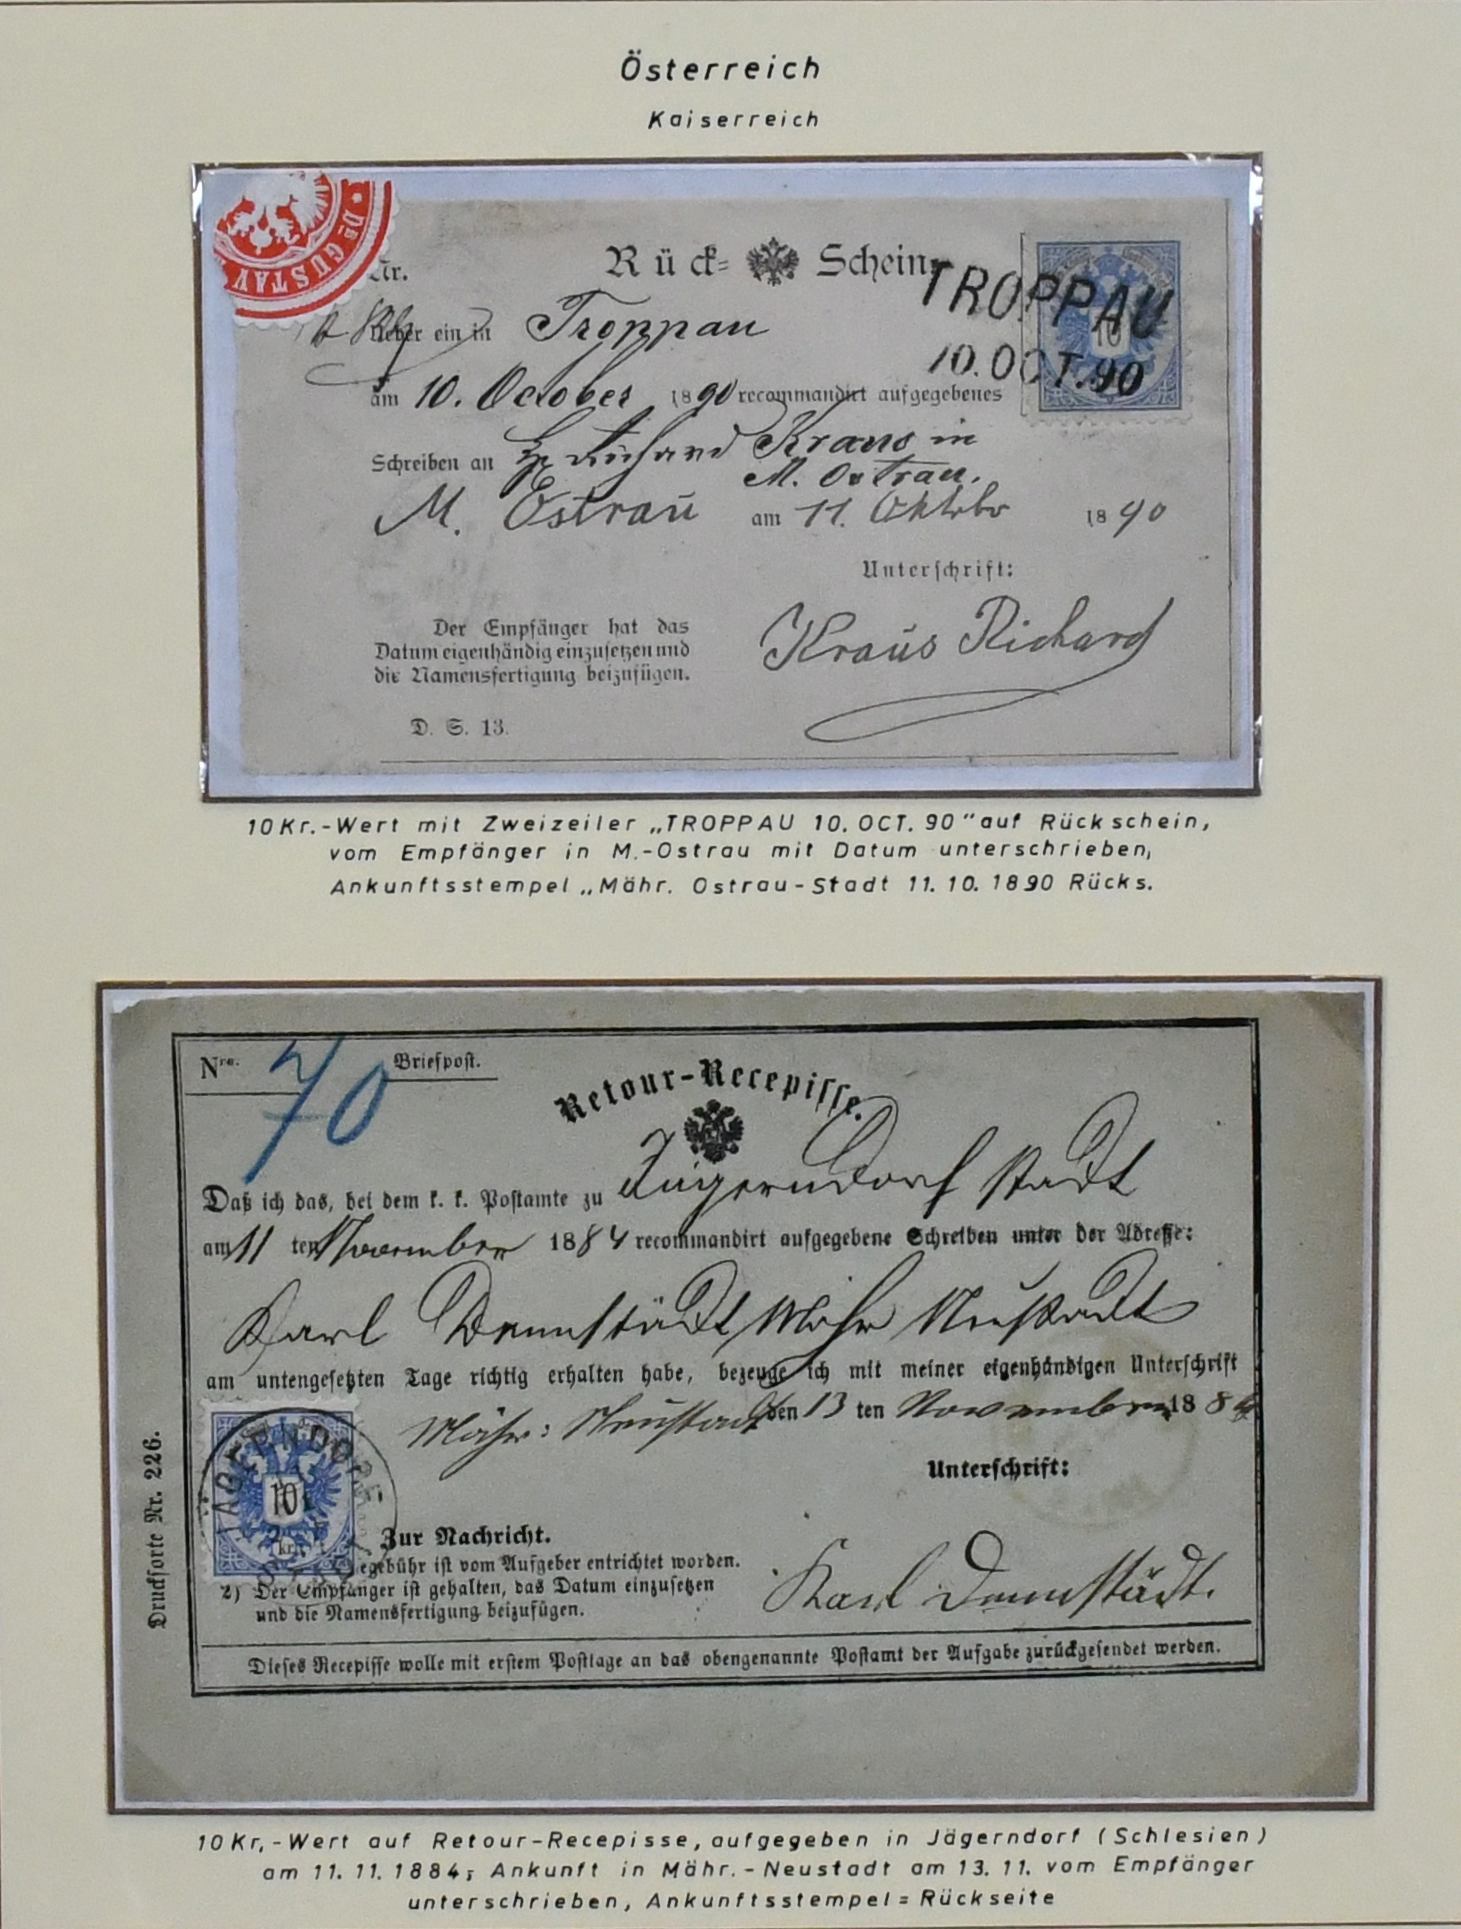 Österreich
Kaiserreich
Dr GUSTAV
Nr.
Rück= Schein.
TROPPAU
10. OCT. 90
10
Ueber ein in Troppau
am 10. October 1890 recommandirt aufgegebenes
Schreiben an Richard Kraus in
M. Ostrau.
M. Ostrau am 11. Oktober 1890
Unterschrift:
Der Empfänger hat das
Datum eigenhändig einzusetzen und
die Namensfertigung beizufügen.
Kraus Richard
D. S. 13.
10Kr.-Wert mit Zweizeiler „TROPPAU 10. OCT. 90" auf Rückschein,
vom Empfänger in M.-Ostrau mit Datum unterschrieben,
Ankunftsstempel „Mähr. Ostrau-Stadt 11. 10. 1890 Rücks.
Nro. 70 Briefpost.
Retour-Recepisse.
Daß ich das, bei dem k. k. Postamte zu Jägerndorf Stadt
am 11 ten November 1884 recommandirt aufgegebene Schreiben unter der Adresse:
Karl Dennstädt Mähr Neustadt
am untengesetzten Tage richtig erhalten habe, bezeuge ich mit meiner eigenhändigen Unterschrift
Mähr: Neustadt den 13 ten November 1884
Unterschrift:
JÄGERNDORF
10
kr
Zur Nachricht.
egebühr ist vom Aufgeber entrichtet worden.
2) Der Empfänger ist gehalten, das Datum einzusetzen
und die Namensfertigung beizufügen.
Karl Dennstädt.
Dieses Recepisse wolle mit erstem Posttage an das obengenannte Postamt der Aufgabe zurückgesendet werden.
Drucksorte Nr. 226.
10Kr,-Wert auf Retour-Recepisse, aufgegeben in Jägerndorf (Schlesien)
am 11. 11. 1884; Ankunft in Mähr.-Neustadt am 13. 11. vom Empfänger
unterschrieben, Ankunftsstempel = Rückseite